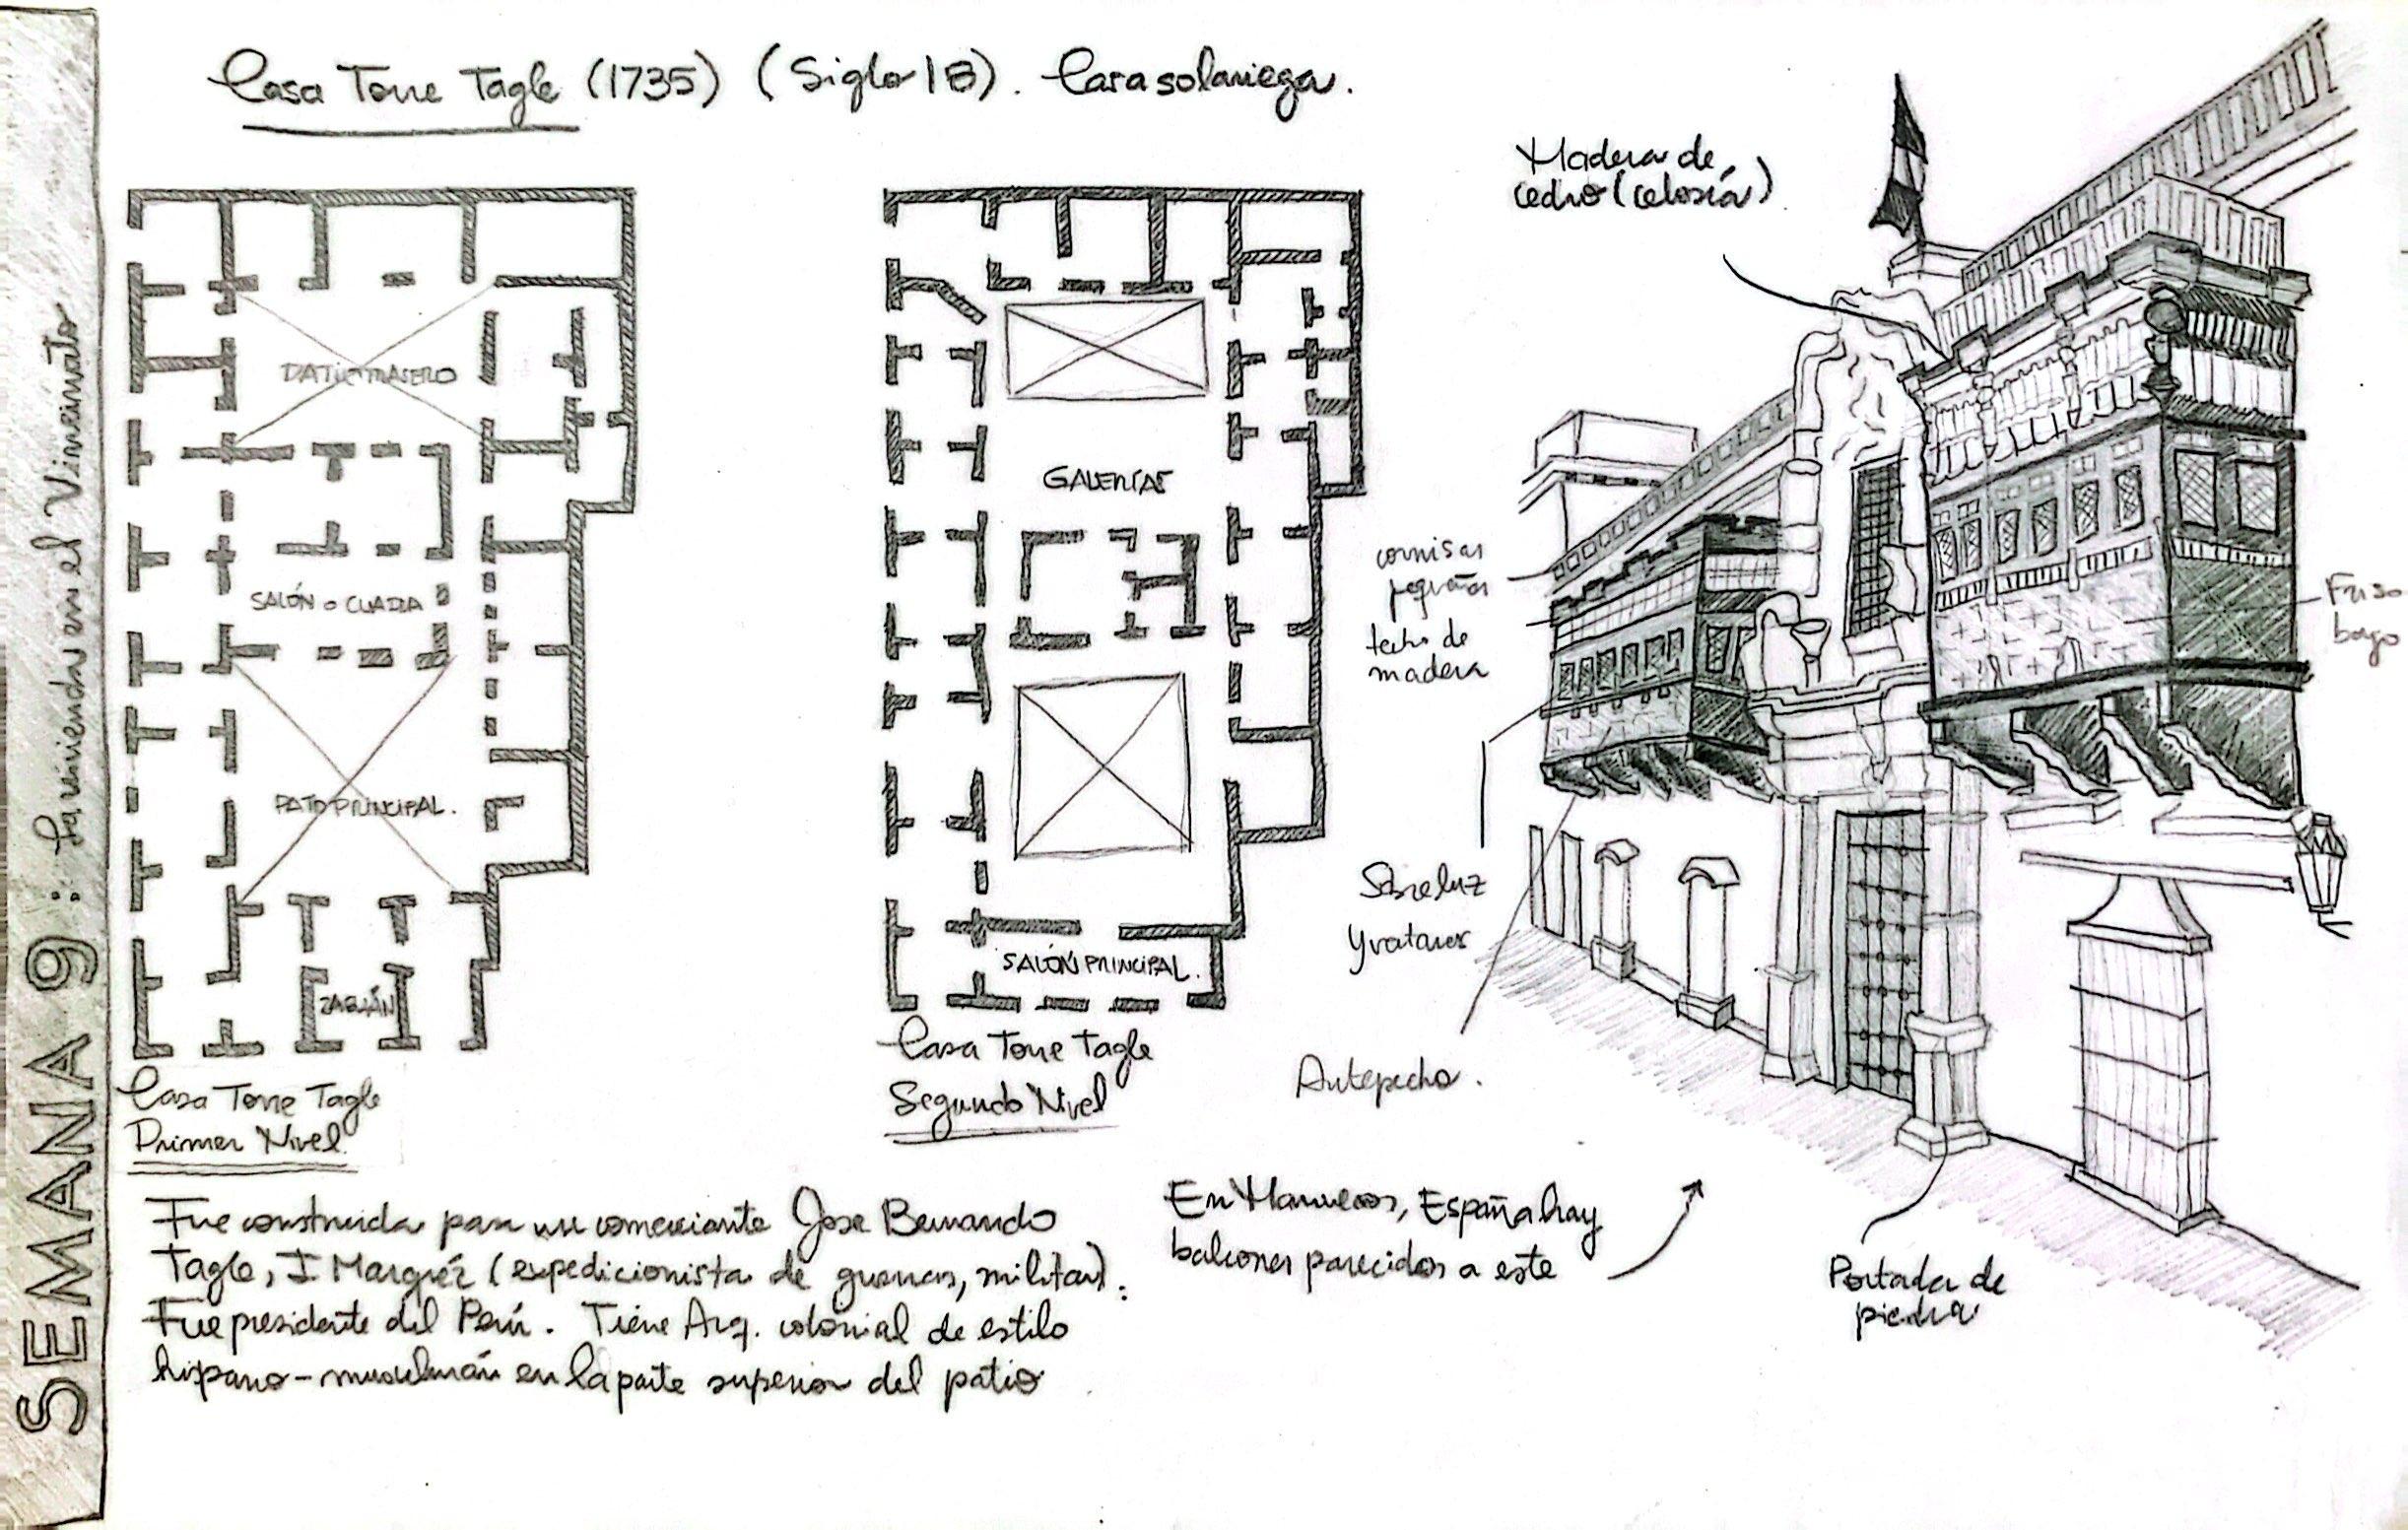 SEMANA 9 : La vivienda en el Virreinato
Casa Torre Tagle (1735) (Siglo 18). Casa solariega.
PATIO TRASERO
SALÓN o CUADRA
PATIO PRINCIPAL.
ZAGUÁN
Casa Torre Tagle
Primer Nivel
GALERÍAS
SALÓN PRINCIPAL.
Casa Torre Tagle
Segundo Nivel
Madera de
cedro (celosía)
cornisas
pequeñas
techo de
madera
Sobreluz
Antepecho.
Friso
bajo
Portada de
piedra
Fue construida para un comerciante Jose Bernardo
Tagle, I Marqués (expedicionista de guerras, militar).
Fue presidente del Perú. Tiene Arq. colonial de estilo
hispano-musulmán en la parte superior del patio
En Marruecos, España hay
balcones parecidos a este